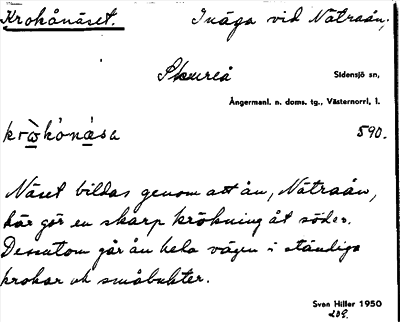 Krokånäset. Inäga vid Nätraån,
Skureå Sidensjö sn,
Ångermanl. n. doms. tg., Västernorrl. l.
590.
Näset bildas genom att ån, Nätraån,
här gör en skarp krökning åt söder.
Dessutom går ån hela vägen i ständiga
krokar och småbukter.
Sven Hiller 1950
209.